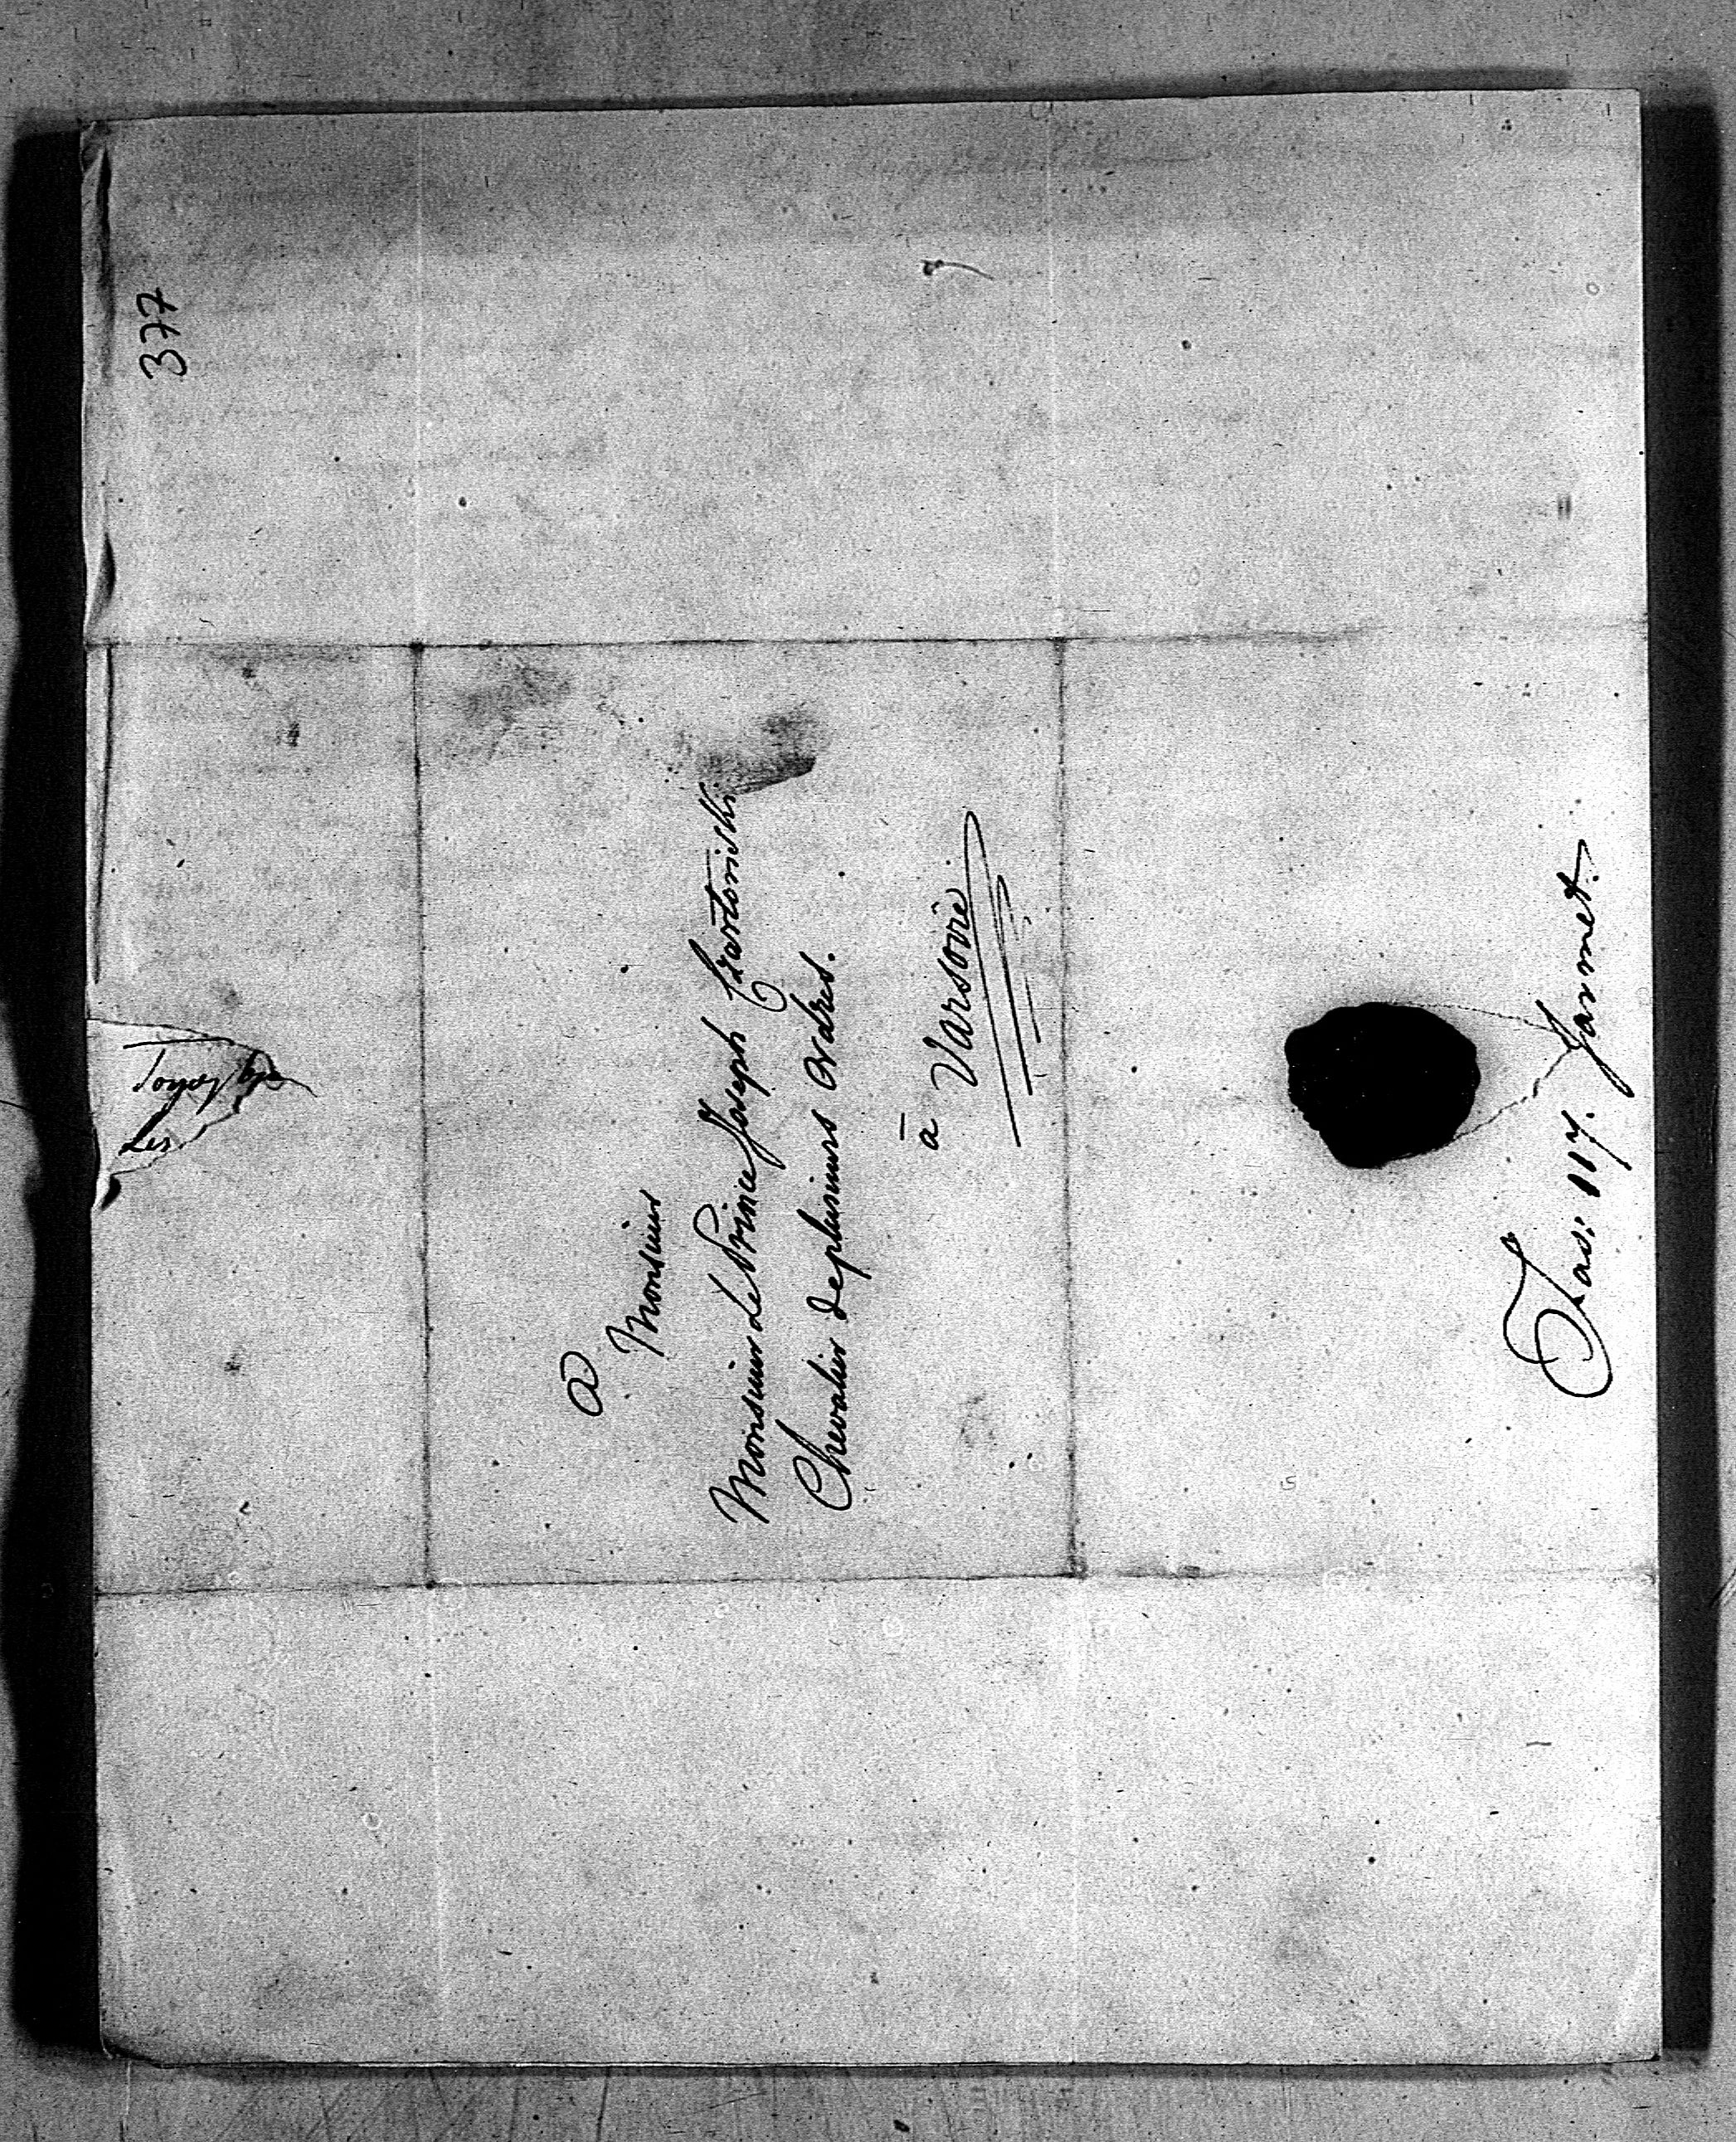 377
A
Monsieur
Monsieur Le Prince Joseph Czartoriski
Chevalier de plusieurs Ordres.
à Varsovie
Fasc: 117. Jarmet.